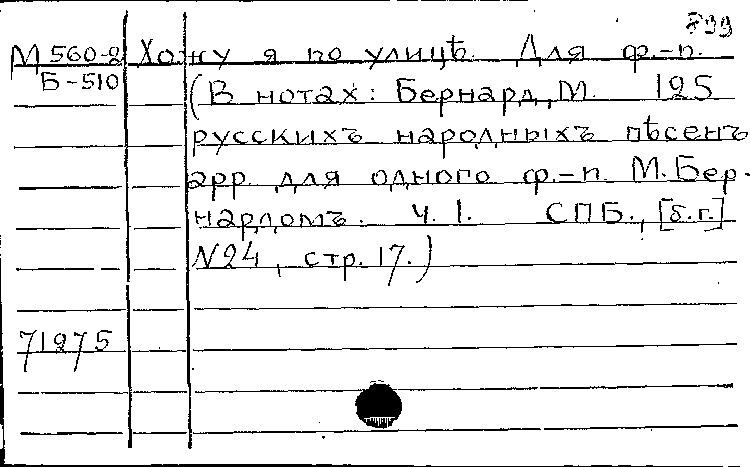 799
М 560-2 Хожу я по улицѣ. Для ф.-п.
Б-510 (В нотах: Бернард, М. 125
русскихъ народныхъ пѣсенъ
арр. для одного ф.-п. М. Бер-
нардомъ. Ч. I. СПБ., [б.г.]
N24, стр. 17.)
71275